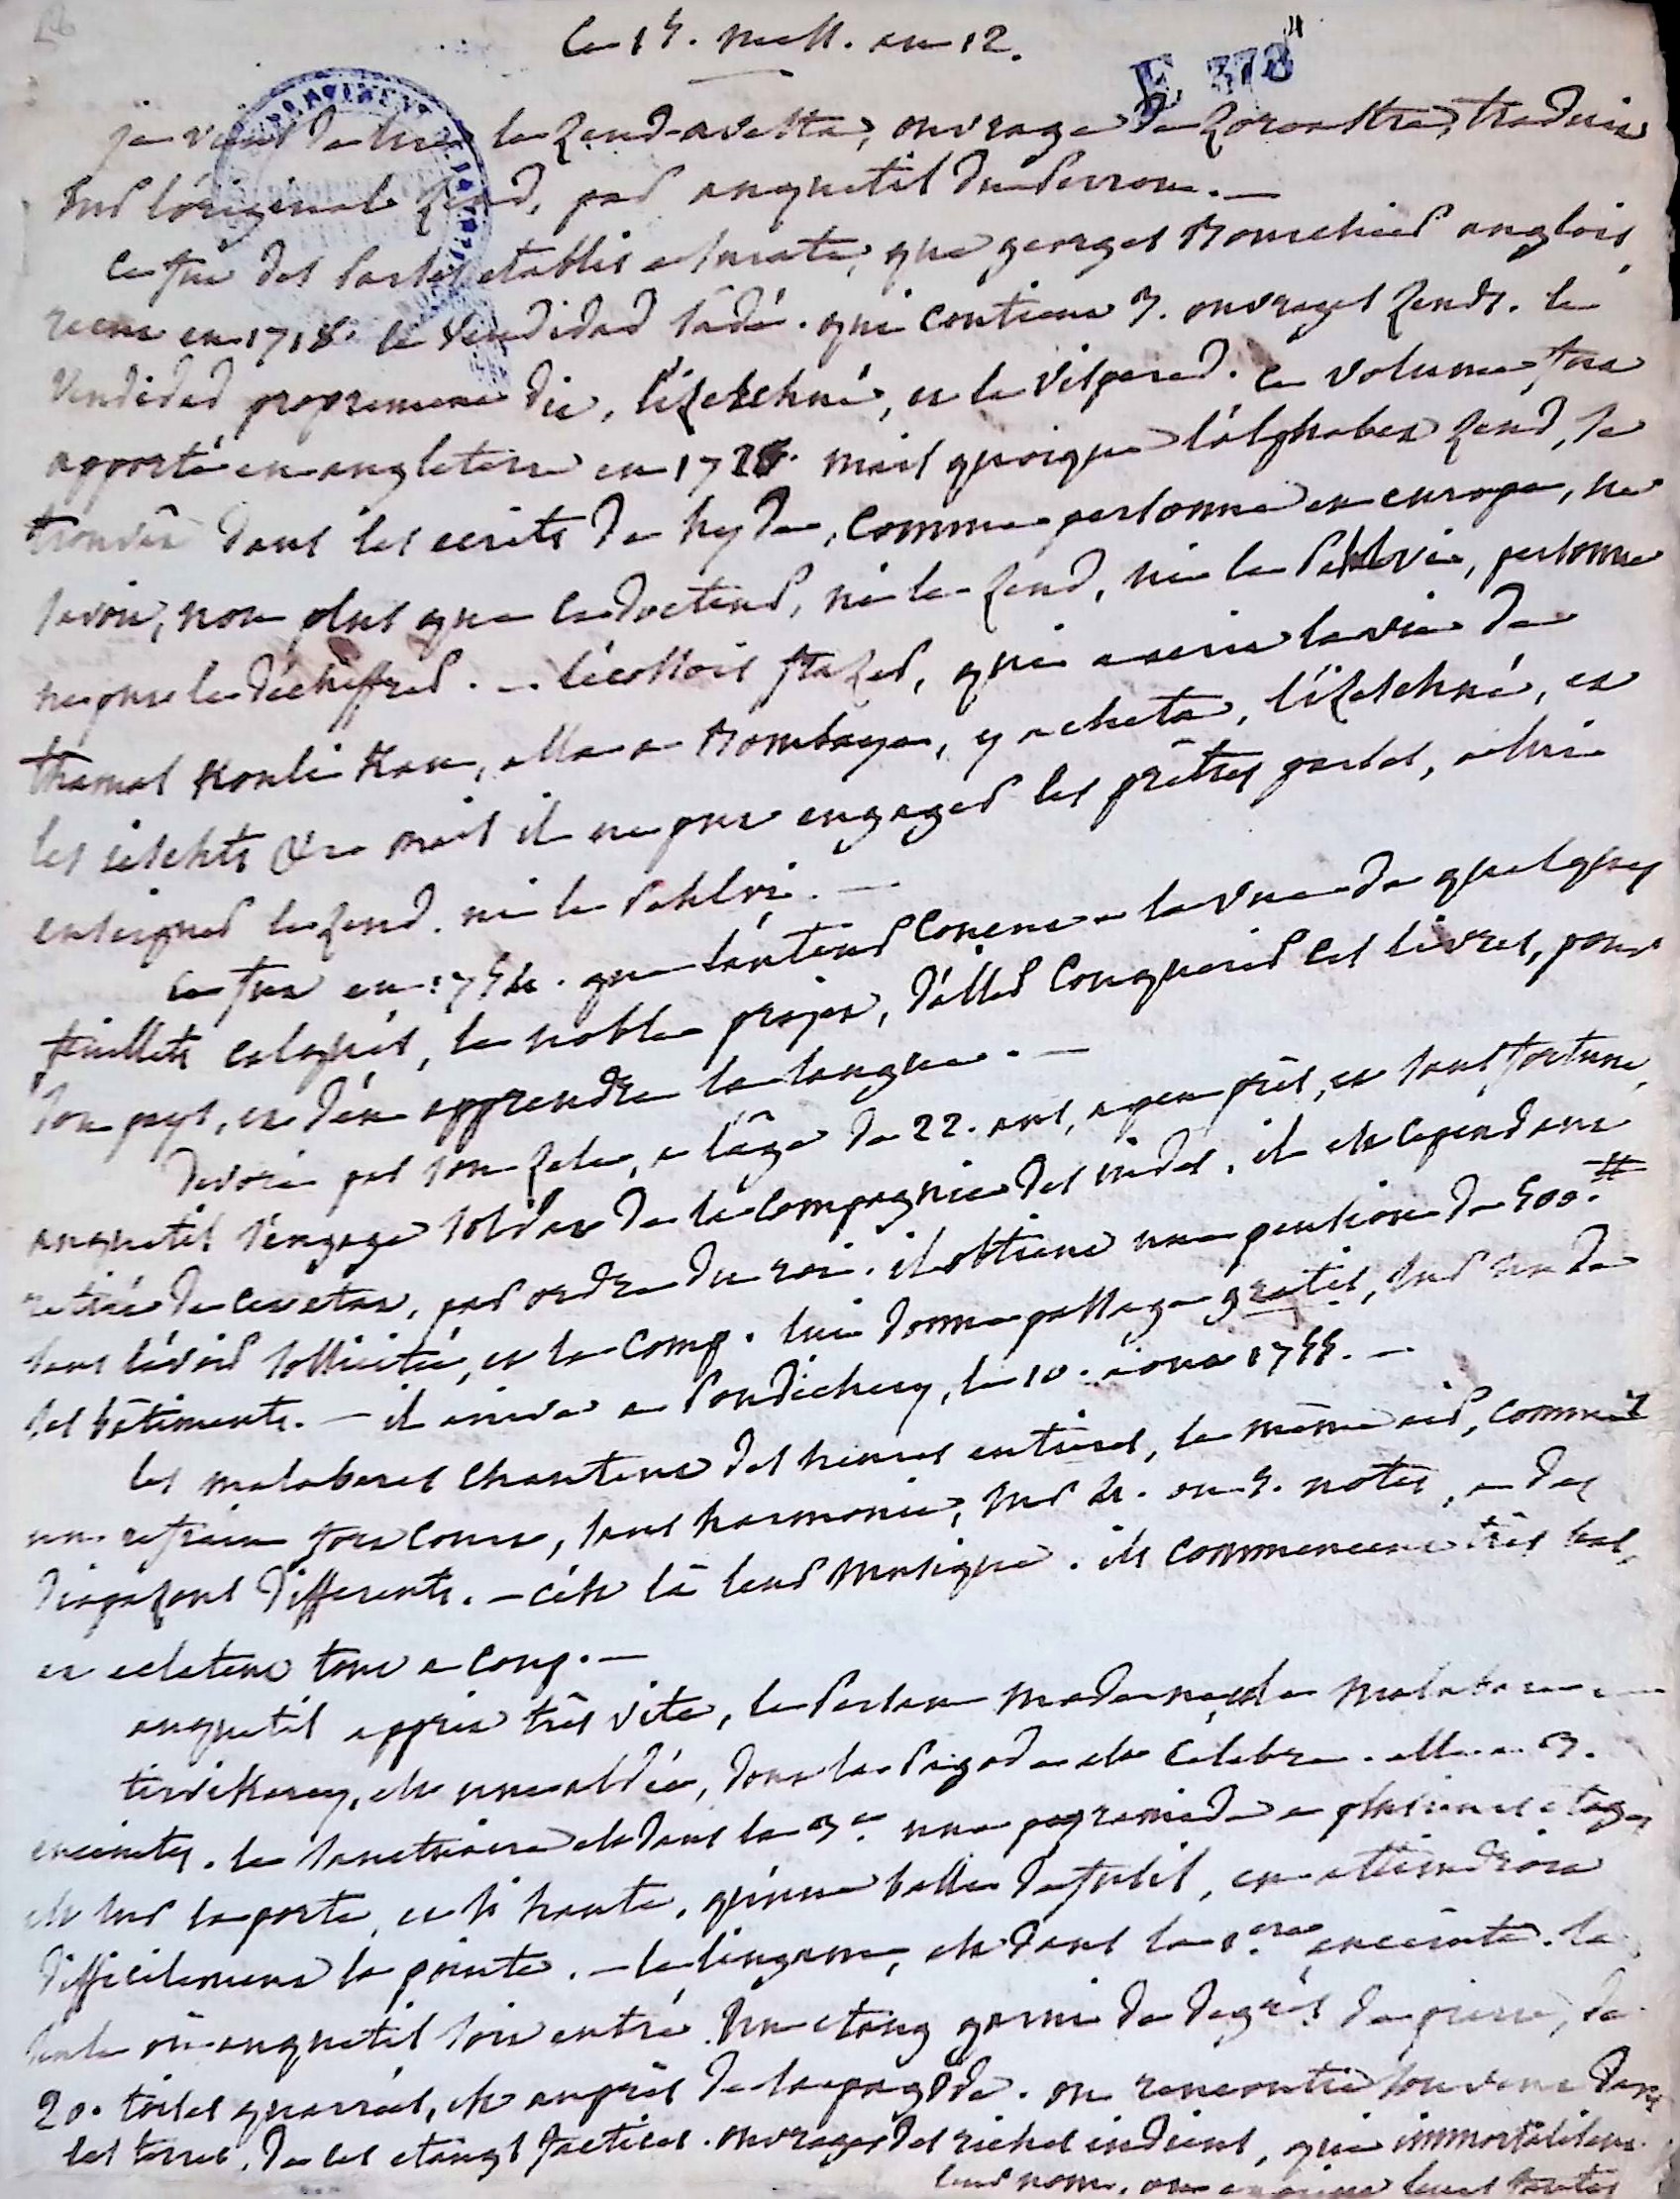 Le 15. mess. an 12.
E 378
je viens de lire le Zend-avesta, ouvrage de Zoroastre, traduit
sur l'original Zend, par anquetil Duperron. —
ce fut des Parses etablis a Surate, que georges Bourchier anglois,
recut en 1718. le Vendidad Sadé. qui contient 3. ouvrages Zends. le
Vendidad proprement dit, l'izeschné, et le Vispered. ce volume fut
apporté en angleterre en 1723. mais quoique l'alphabet Zend, se
trouvât dans les ecrits de hyde, comme personne en europe, ne
savoit, non plus que ce docteur, ni le Zend, ni le Pehlvi, personne
ne put le déchiffrer. — l'écossois frazer, qui a ecrit la vie de
thamas Kouli Kan, alla a Bombaye, y acheta, l'izeschné, et
les ieschts &c mais il ne put engager les prêtres parses, a lui
enseigner le Zend. ni le Pehlvi. —
ce fut en 1754. que l'auteur conçut a la vue de quelques
feuillets calqués, le noble projet, d'aller conquerir ces livres, pour
son pays, et d'en apprendre la langue. —
Devoré par son zele, a l'âge de 22. ans, a peu près, et sans fortune,
anquetil s'engage soldat de la compagnie des indes, il est cependant
retiré de cet etat, par ordre du roi. il obtient une pension de 500.#
sans l'avoir sollicitée, et la comp. lui donne passage gratis, sur un de
ses bâtiments. — il arrive a Pondichery, le 10. aout 1755. —
les malabares chantent des heures entieres, le même air, comme
un refrain fort court, sans harmonie, sur 4. ou 5. notes, a des
diapazons differents. — c'est là leur musique. ils commencent très bas,
et eclatent tout a coup. —
anquetil apprit très vite, le Persan moderne, et le malabare. —
est une aldée, dont la Pagode est celebre. elle a 3.
enceintes. le sanctuaire est dans la 3e. une pyramide a plusieurs etages
est sur la porte, et si haute, qu'une balle de fusil, en atteindroit
difficilement la pointe. — le lingam, est dans la 1.ere enceinte. la
seule où anquetil soit entré. Un etang garni de degrés de pierre, de
20. toises quarrées, est auprès de la pagode. on rencontre souvent dans
les terres, de ces etangs factices. ouvrages des riches indiens, qui immortalisent
leur nom,